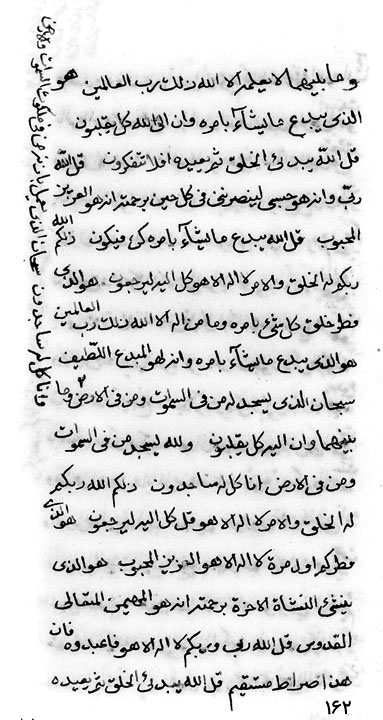 وما بينهما لا يعلمه الا الله ذلك رب العالمين هو
الذى يبدع ما يشآء بامره وان الى الله كل يقلبون
قل الله يبدئ الخلق ثم يعيده افلا تتفكرون قل الله
ربى وانه هو حسبى لينصرنى فى كل حين برحمته انه هو العزيز
المحبوب قل الله يبدع ما يشآء بامره كن فيكون ذلكم الله
ربكم له الخلق والامر لا اله الا هو كل اليه ليرجعون هو الذى
فطر خلق كل شئ بامره وما من اله الا الله ذلك رب العالمين
هو الذى يبدع ما يشآء بامره وانه لهو المبدع اللطيف
سبحان الذى يسجد له من فى السموات ومن فى الارض وما
بينهما وان اليه كل يقلبون ولله يسجد من فى السموات
ومن فى الارض انا كل له ساجدون ذلكم الله ربكم
له الخلق والامر لا اله الا هو قل كل اليه ليرجعون هو الذى
فطركم اول مرة لا اله الا هو العزيز المحبوب هو الذى
ينشئ النشاة الاخرة برحمته انه هو المهيمن المتعالى
القدوس قل الله ربى وربكم لا اله الا هو فاعبدوه فان
هذا صراط مستقيم قل الله يبدئ الخلق ثم يعيده
١٦٢
سبحان الذى
وانا كل له ساجدون